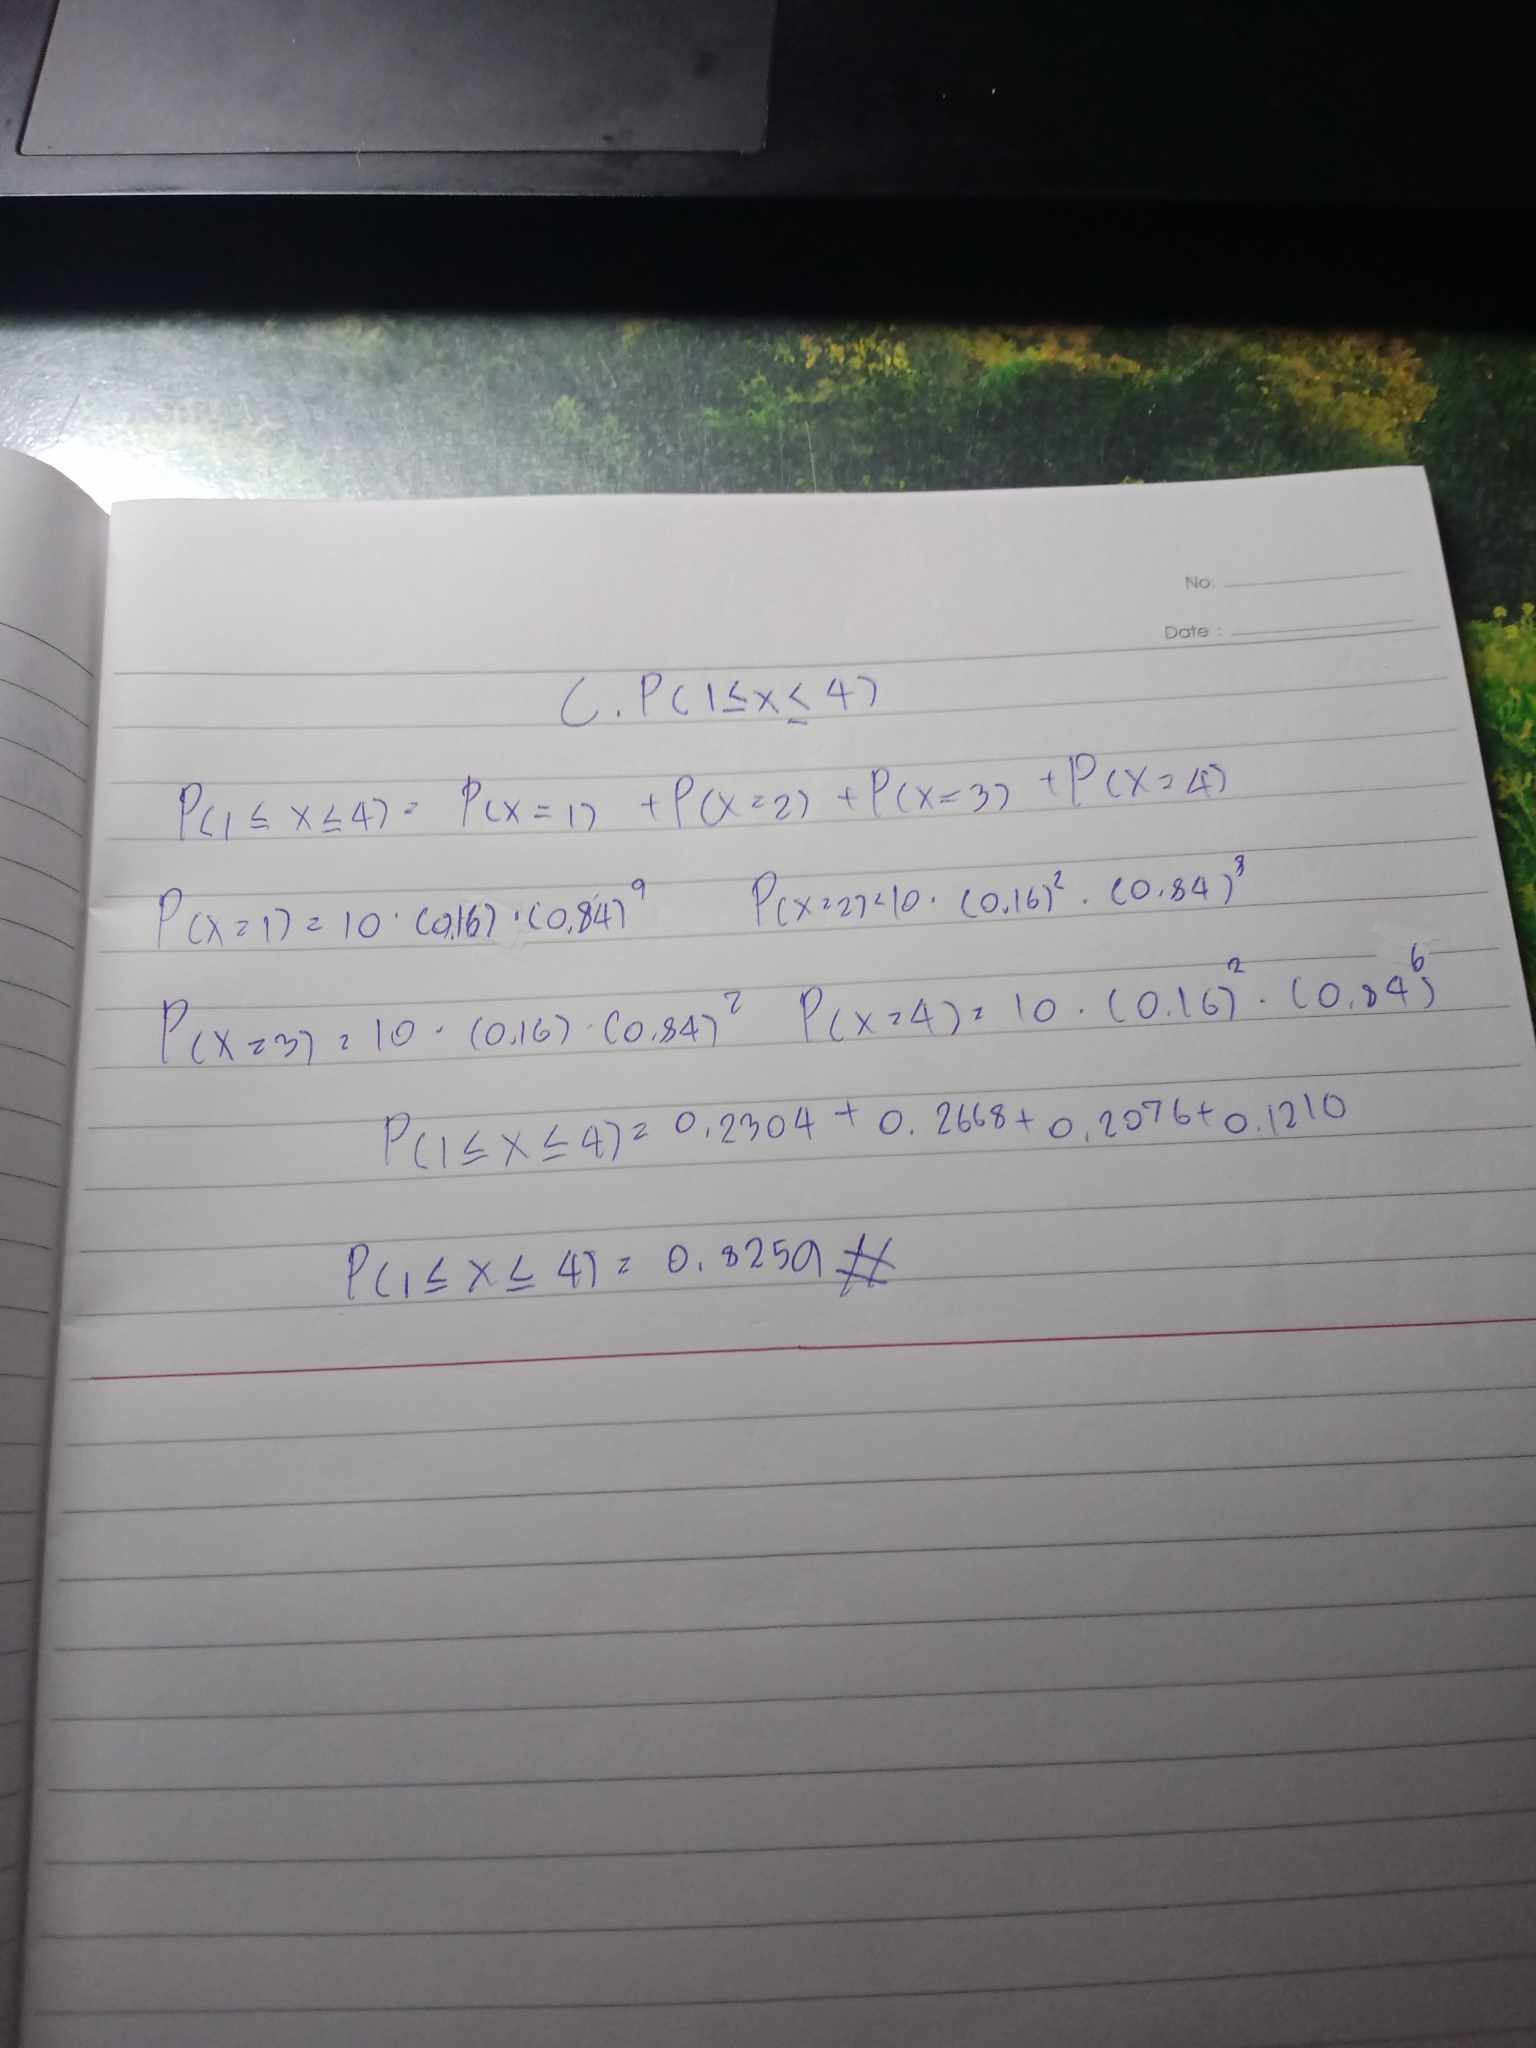 No.
Date :
C. P(1≤x≤4)
P(1≤x≤4)= P(x=1) +P(x=2) +P(x=3) +P(x=4)
P(x=1)=10·(0,16)·(0,84)⁹ P(x=2)=10·(0,16)²·(0.84)⁸
P(x=3)=10·(0,16)·(0,84)² P(x=4)=10·(0.16)²·(0,84)⁶
P(1≤x≤4)=0,2304+0.2668+0,2076+0.1210
P(1≤x≤4)=0.8259 #